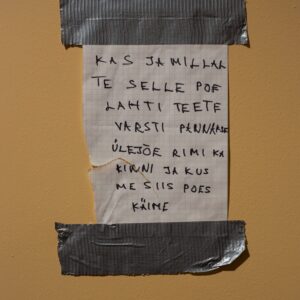 KAS JA MILLAL
TE SELLE POE
LAHTI TEETE
VARSTI PANNAKSE
ÜLEJÕE RIMI KA
KINNI JA KUS
ME SIIS POES
KÄIME